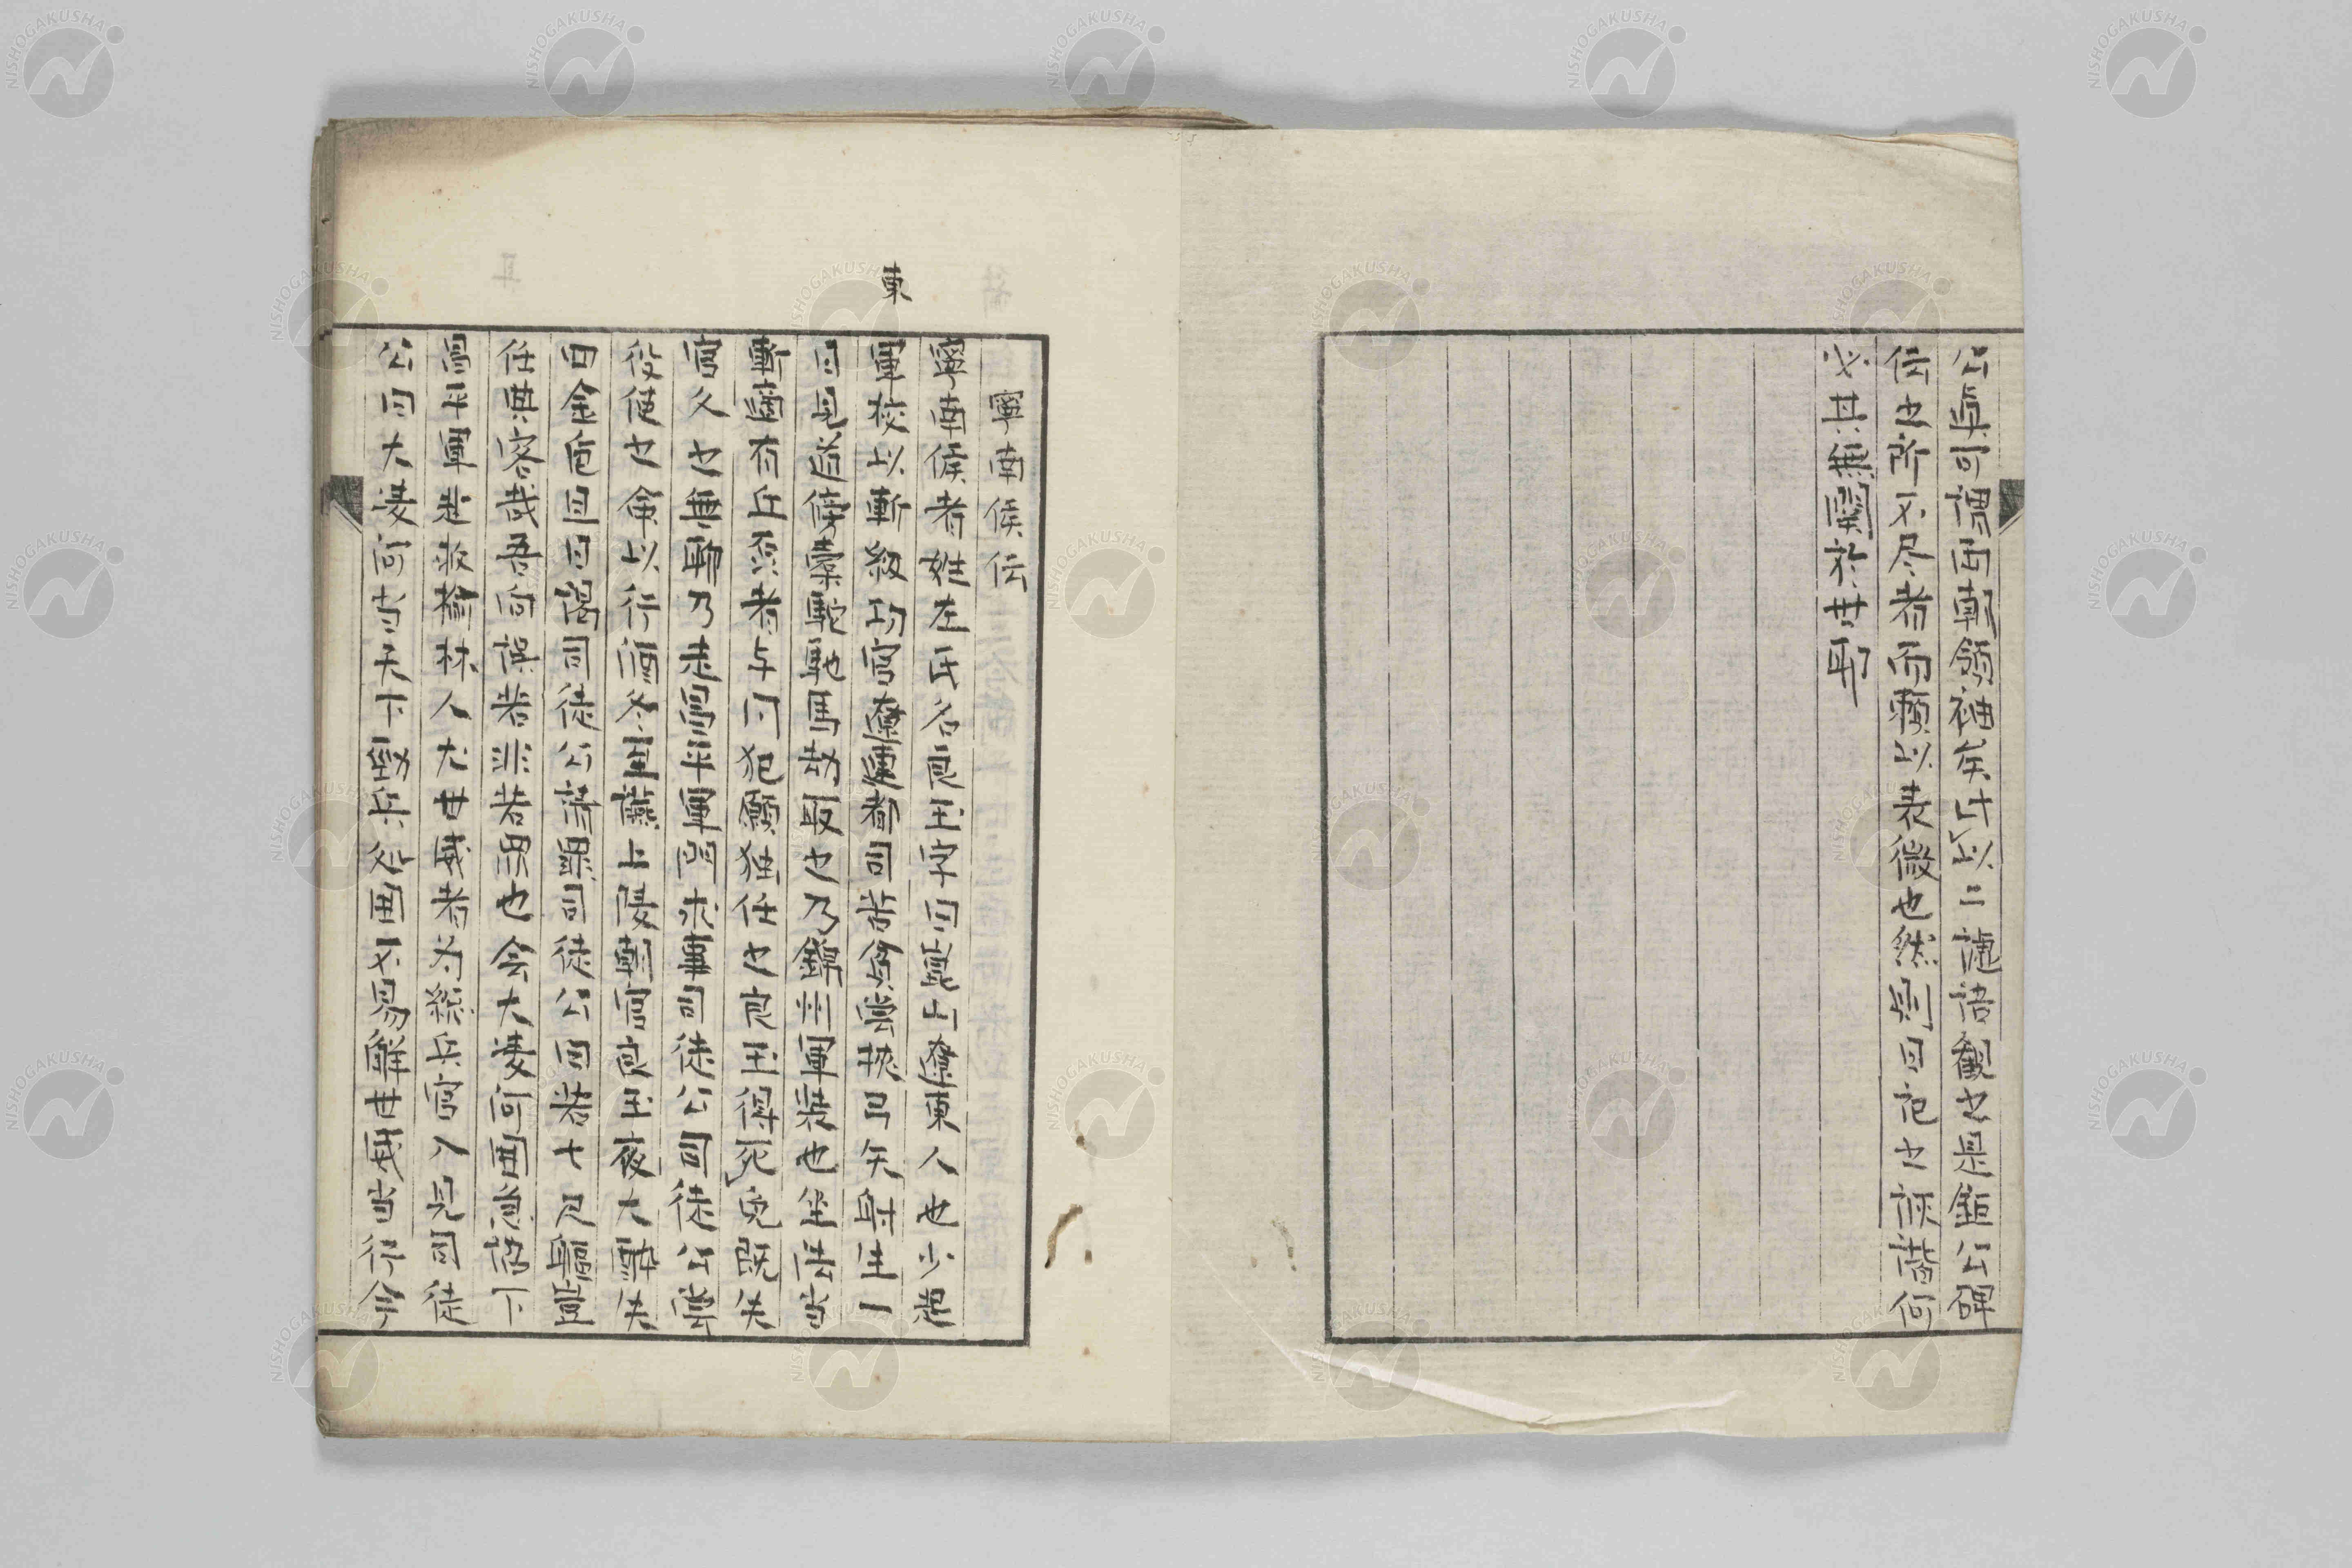 公眞可謂西朝領袖矣此以二謔語観也是鉅公碑
伝也所不尽者而頼以表微也然則曰記也詼諧何
必其無関於世耶
東
寧南侯伝
寧南侯者姓左氏名良玉字曰崑山遼東人也少起
軍校以斬級功官遼東都司苦貧嘗挟弓矢射生一
日見道傍槖駝馳馬劫取也乃錦州軍装也坐法当
斬適有丘磊者与同犯願独任也良玉得死免既失
官久也無聊乃走昌平軍門求事司徒公司徒公嘗
役使也命以行酒冬至讌上陵朝官良玉夜大酔失
四金巵旦日謁司徒公請罪司徒公曰若七尺軀豈
任典客哉吾向誤若非若罪也会大凌河囲急詔下
昌平軍赴救榆林人尤世威者為総兵官入見司徒
公曰大凌河当天下勁兵処囲不易解世威当行今
NISHOGAKUSHA